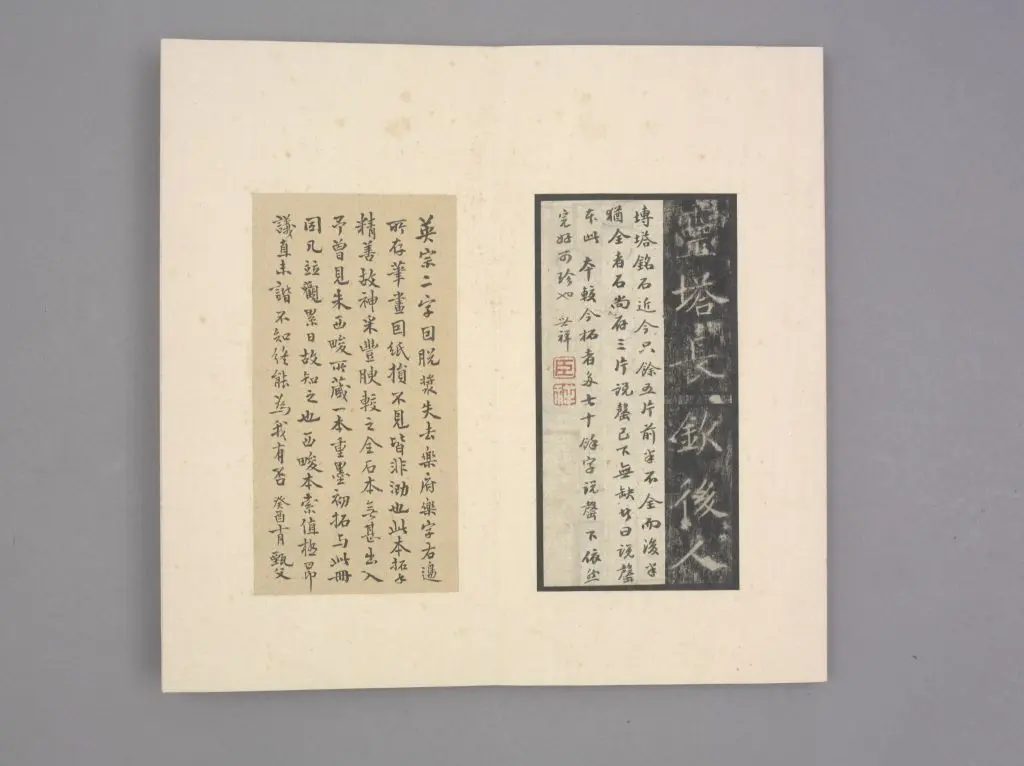 靈塔長欽後人
塼塔銘石近今只餘五片前半不全而後半
猶全者石尚存三片説罄已下無缺皆曰説罄
本此本較今拓者多七十餘字説罄下依然
完好可珍也 祥
英宗二字因脱漿失去樂府樂字右邊
所存筆畫因紙損不見皆非泐也此本拓手
精善故神采豐腴較之全石本無甚出入
予曾見朱酉畯所藏一本重墨初拓与此冊
同凡並觀累日故知之也酉畯本索值極昂
議直未諧不知終能為我有否 癸酉 甄父